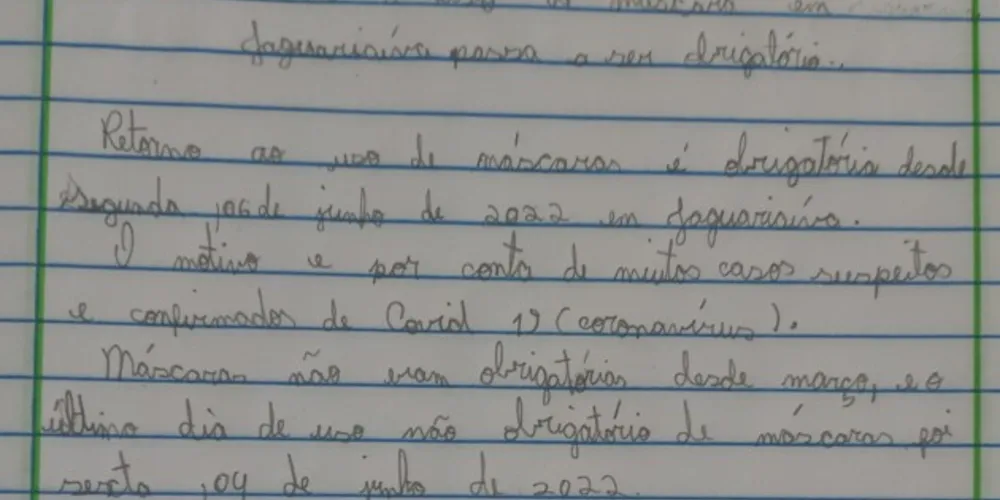 uso de máscara em
Jaguariaíva passa a ser obrigatório.
Retorno ao uso de máscaras é obrigatória desde
segunda ,06 de junho de 2022 em Jaguariaíva.
O motivo e por conta de muitos casos suspeitos
e confirmados de Covid 19 (coronavírus).
Máscaras não eram obrigatórias desde março, e o
último dia de uso não obrigatório de máscaras foi
sexta ,04 de junho de 2022.